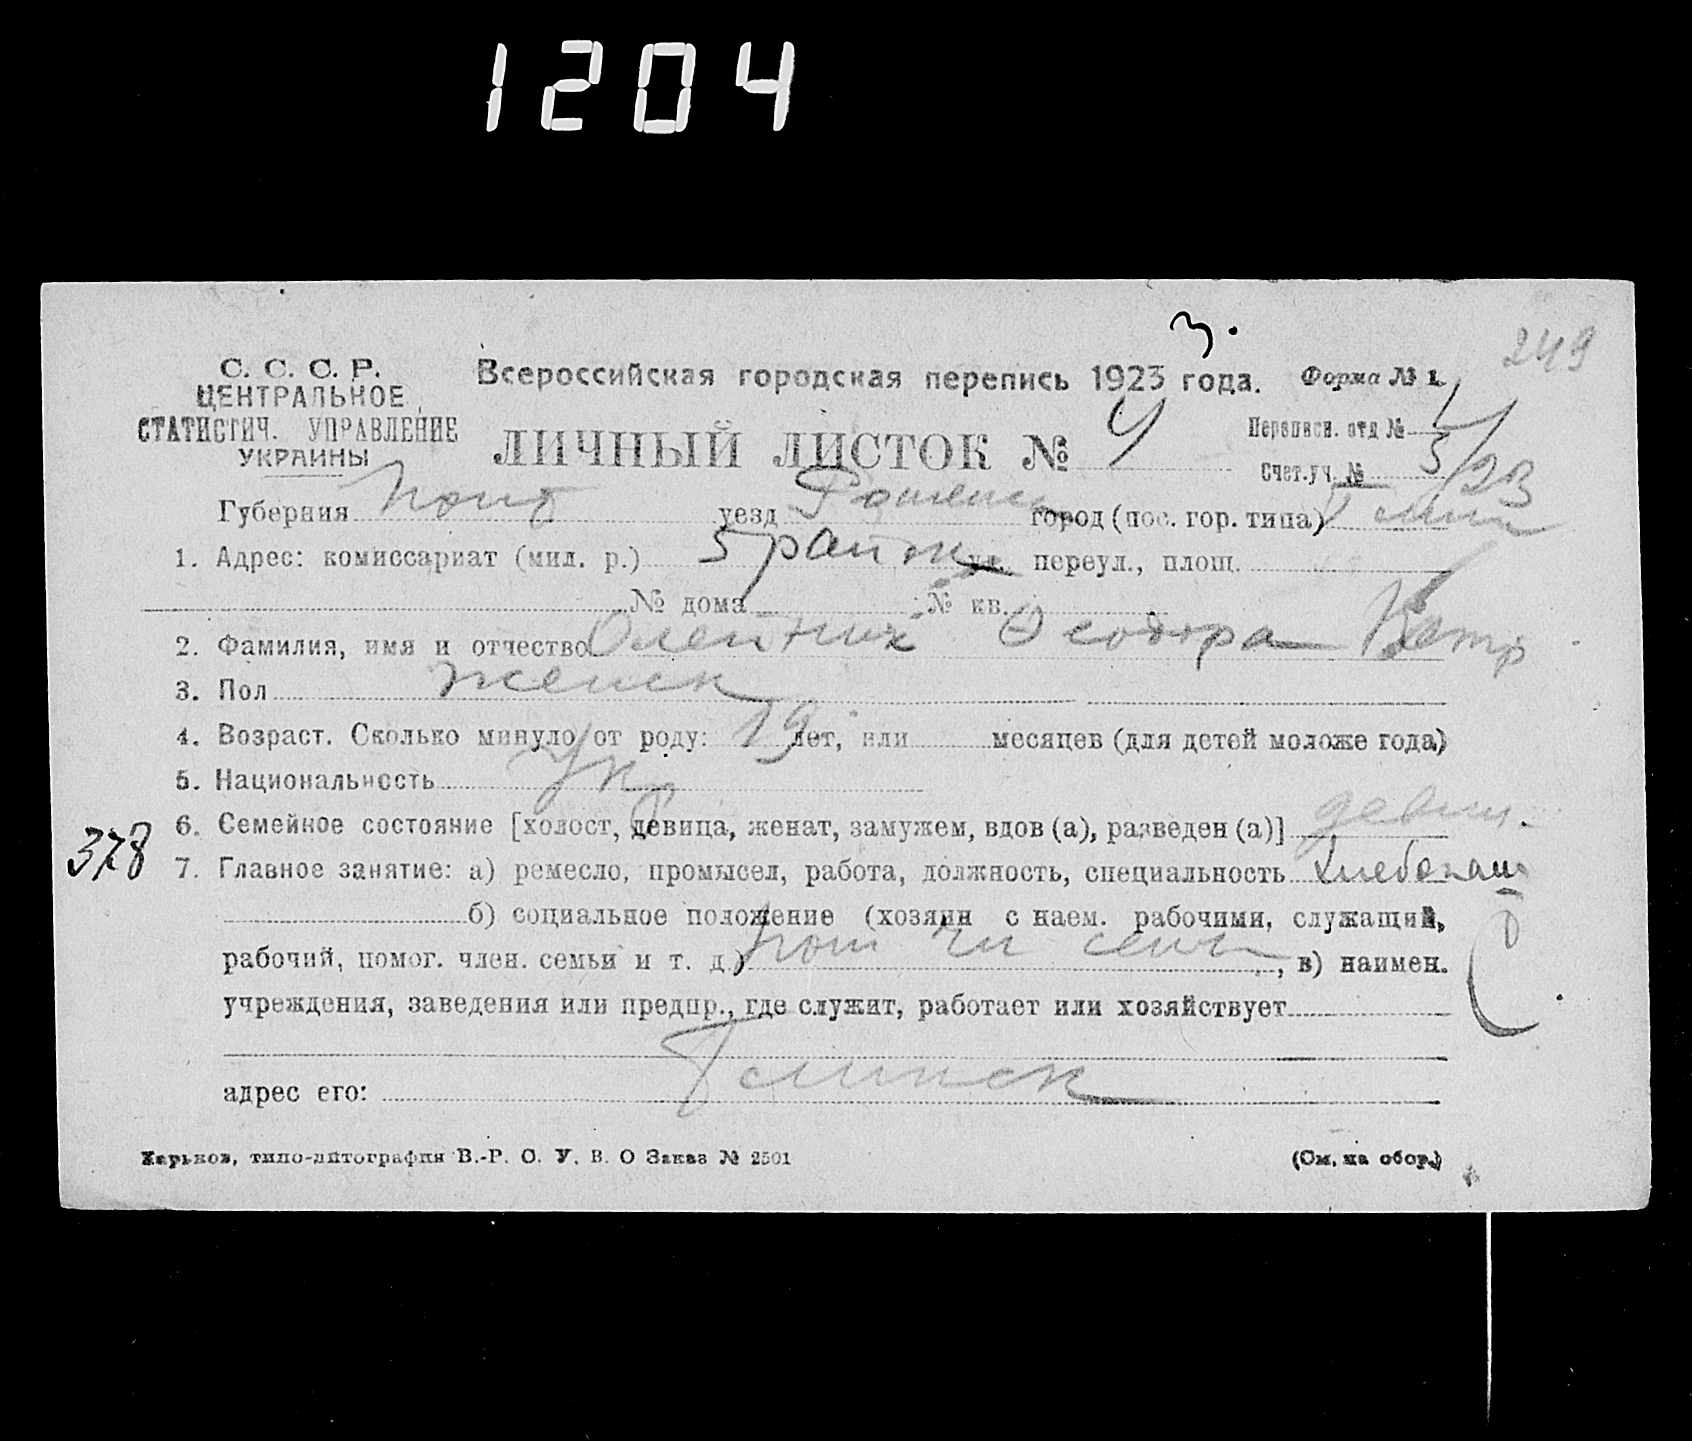 1204
3.
249
С. С. С. Р.
ЦЕНТРАЛЬНОЕ
СТАТИСТИЧ. УПРАВЛЕНИЕ
УКРАИНЫ
Всероссийская городская перепись 1923 года. Форма № 1.
ЛИЧНЫЙ ЛИСТОК № 4
Переписн. отд №
Счет.уч. № 5/23
Губерния уезд Роменск город (пос. гор. типа)
1. Адрес: комиссариат (мил. р.) 5 район ул. переул., площ.
№ дома № кв.
2. Фамилия, имя и отчество Олейник Феодора Петр
3. Пол женск
4. Возраст. Сколько минуло от роду: 19 лет, или месяцев (для детей моложе года)
5. Национальность Укр
6. Семейное состояние [холост, девица, женат, замужем, вдов (а), разведен (а)] девиц.
378
7. Главное занятие: а) ремесло, промысел, работа, должность, специальность хлебопаш
б) социальное положение (хозяин с наем. рабочими, служащий,
рабочий, помог. член. семьи и т. д.) пом чл семьи, в) наимен.
учреждения, заведения или предпр., где служит, работает или хозяйствует
адрес его: Глинск
Харьков, типо-литография В.-Р. О. У. В. О Заказ № 2501 (См. на обор.)